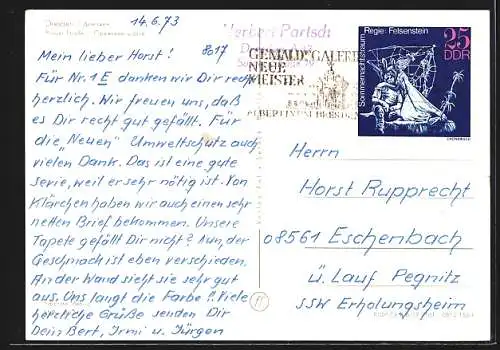 14.6.73
Mein lieber Horst! 8017
Für Nr. 1 E danken wir Dir recht
herzlich. Wir freuen uns, daß
es Dir recht gut gefällt. Für
die „Neuen" Umweltschutz auch
vielen Dank. Das ist eine gute
Serie, weil er sehr nötig ist. Von
Klärchen haben wir auch einen sehr
netten Brief bekommen. Unsere
Tapete gefällt Dir nicht? Nun, der
Geschmach ist eben verschieden.
An der Wand sieht sie sehr gut
aus. Uns langt die Farbe! Viele
herzliche Grüße senden Dir
Dein Bert, Irmi u. Jürgen
Herbert Partsch
GEMÄLDEGALERIE
NEUE
MEISTER
ALBERTINUM DRESDEN
Regie: Felsenstein
Sommernachtstraum
25
DDR
Herrn
Horst Rupprecht
08561 Eschenbach
ü. Lauf Pegnitz
SSW Erholungsheim